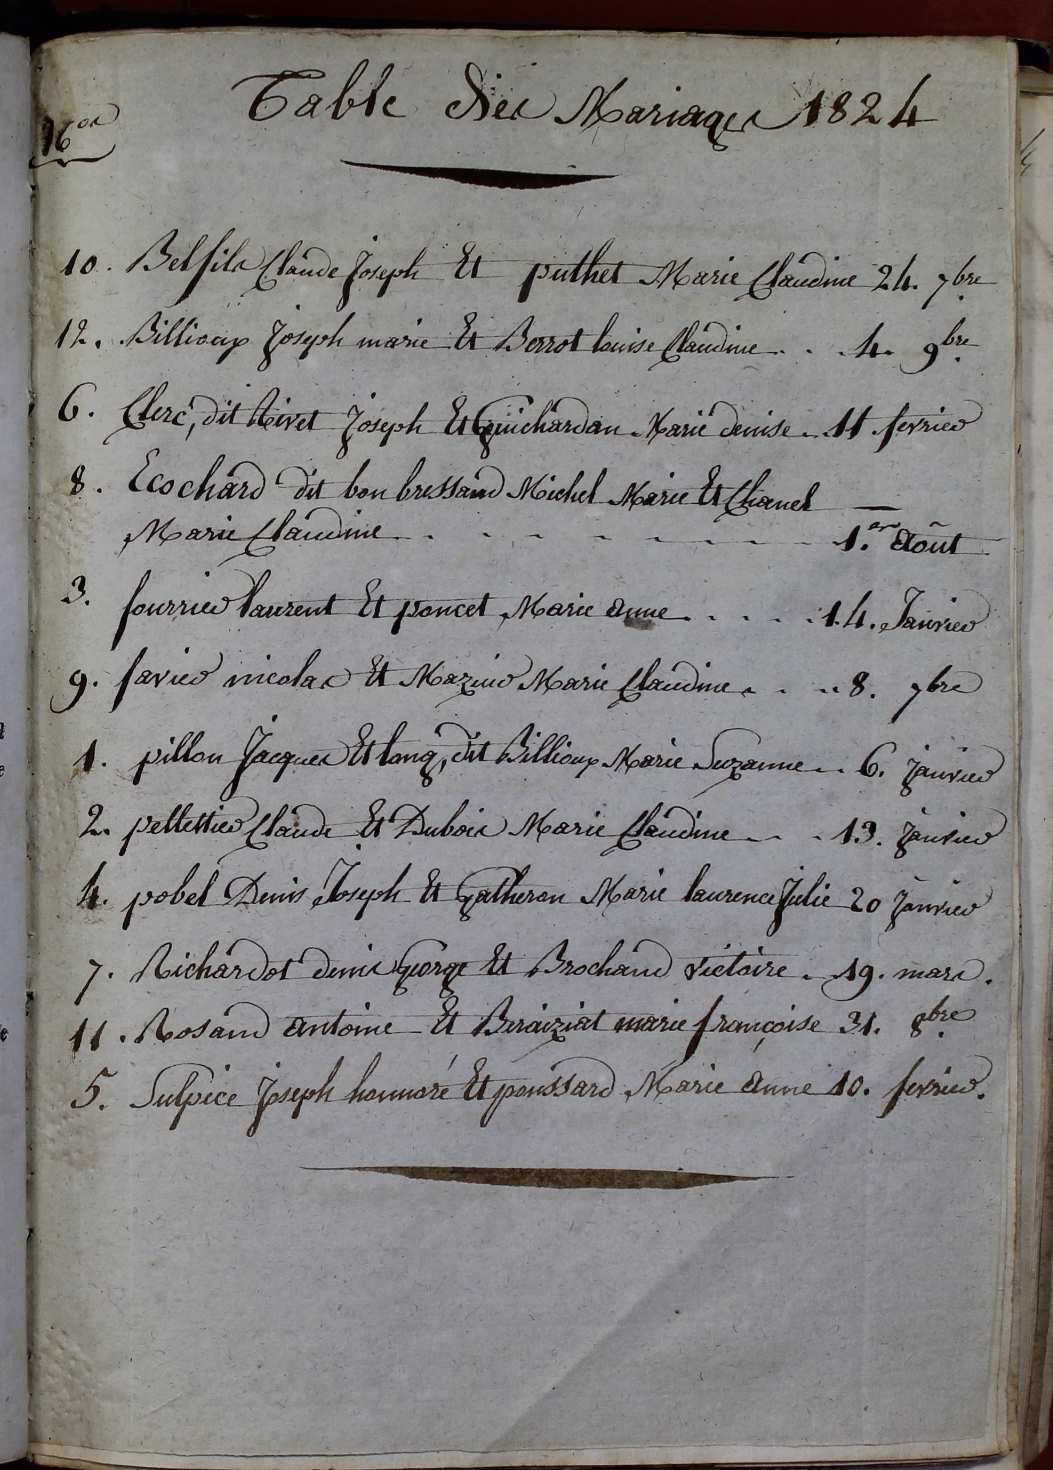 Table Des Mariages 1824
10. Belfils Claude Joseph Et puthet Marie Claudine 24. 7bre
12. Billioux Joseph marie Et Berrot louise Claudine . . . 4. 9bre
6. Clerc, dit Rivet Joseph Et Guichardan Marie denise . 11 fevrier
8. Ecochard dit bon bressand Michel Marie Et Chanel
Marie Claudine . . . . . . . . 1.er Août
3. fourrier laurent Et poncet Marie anne . . . . . 14. Janvier
9. favier nicolas Et Mazuir Marie Claudine . . . 8. 7bre
1. pillon Jacques Et long, dit Billioux Marie Suzanne . . 6. janvier
2. pellettier Claude Et Dubois Marie Claudine . . . 13. janvier
4. pobel Denis Joseph Et Gatheron Marie laurence Julie 20 janvier
7. Richardot denis George Et Brochand victoire . 19. mars.
11. Rosand antoine Et Beraiziat marie françoise 31. 8bre
5. Sulpice Joseph honnoré Et ponssard Marie anne 10. fevrier.